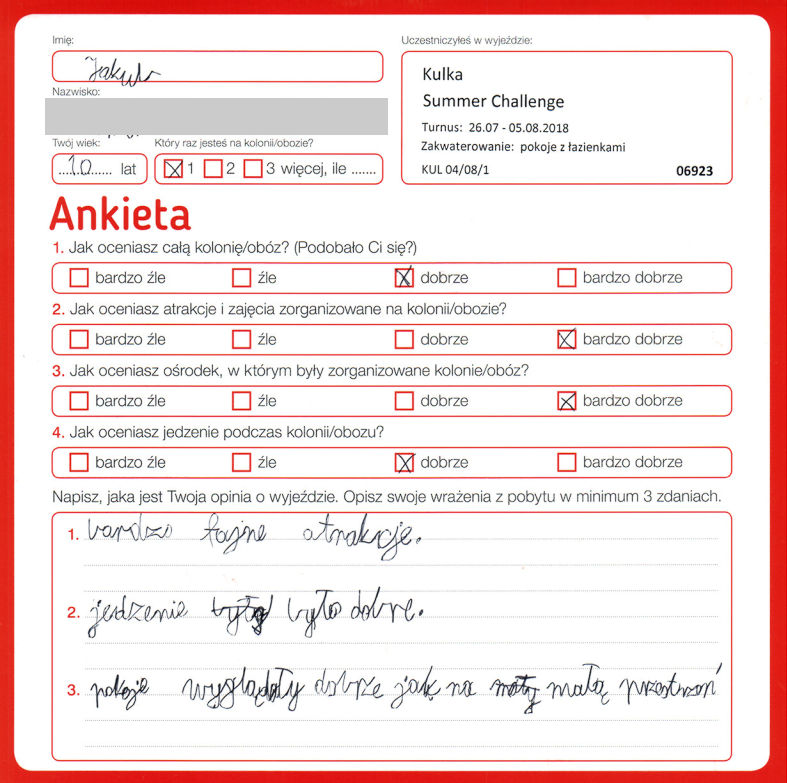 Imię:
Jakub
Uczestniczyłeś w wyjeździe:
Kulka
Summer Challenge
Turnus: 26.07 - 05.08.2018
Zakwaterowanie: pokoje z łazienkami
KUL 04/08/1 06923
Nazwisko:
Twój wiek:
10 lat
Który raz jesteś na kolonii/obozie?
1 2 3 więcej, ile .......
Ankieta
1. Jak oceniasz całą kolonię/obóz? (Podobało Ci się?)
bardzo źle źle dobrze bardzo dobrze
2. Jak oceniasz atrakcje i zajęcia zorganizowane na kolonii/obozie?
bardzo źle źle dobrze bardzo dobrze
3. Jak oceniasz ośrodek, w którym były zorganizowane kolonie/obóz?
bardzo źle źle dobrze bardzo dobrze
4. Jak oceniasz jedzenie podczas kolonii/obozu?
bardzo źle źle dobrze bardzo dobrze
Napisz, jaka jest Twoja opinia o wyjeździe. Opisz swoje wrażenia z pobytu w minimum 3 zdaniach.
1. bardzo fajne atrakcje.
2. jedzenie było dobre.
3. pokoje wyglądały dobrze jak na małą przestrzeń